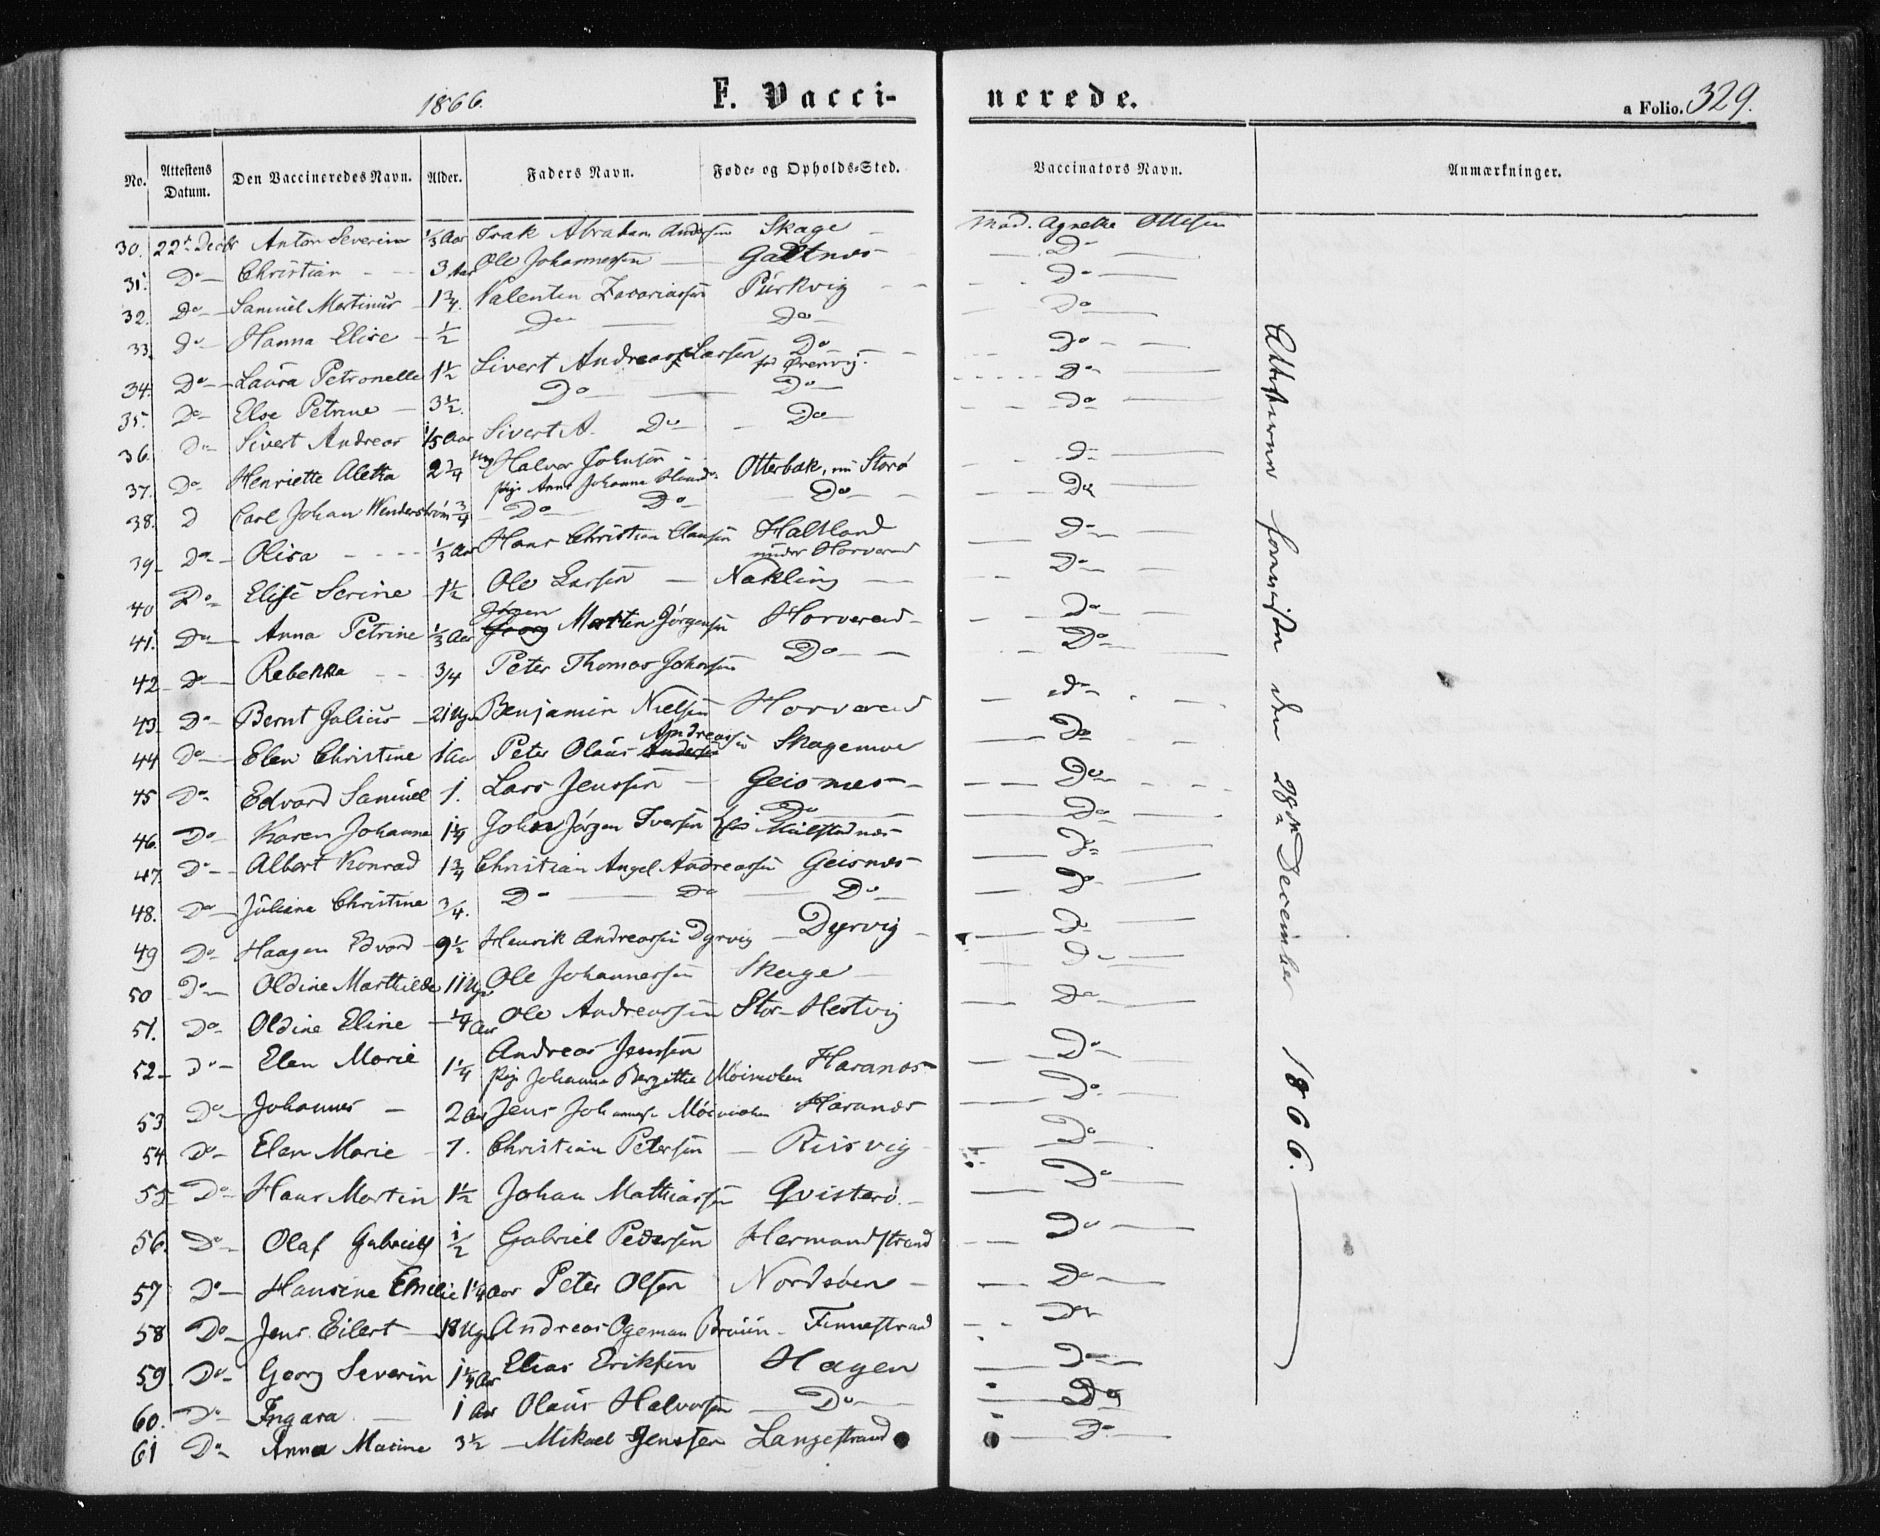 1866. F. Vacci-nerede. a Folio. 329.
No. Attestens Datum. Den Vaccineredes Navn. Alder. Faders Navn. Føde- og Opholds-Sted. Vaccinators Navn. Anmærkninger.
30. 22de Decbr Anton Severin 1/3 Aar Isak Abraham Andersen Skage Mad. Agnethe Ottesen
31. Do Christian 3 Aar Ole Johannessen Galtnes Do
32. Do Samuel Martinus 1 3/4 Valentin Zacariassen Purkvig Do
33. Do Hanna Elise 1/2 Do Do Do
34. Do Laura Petronelle 1 1/2 Sivert Andreas Larsen Do Do
35. Do Else Petrine 3 1/2 Do Do Do
36. Do Sivert Andreas 1/5 Aar Sivert A. Do Do Do
37. Do Henriette Aletha 2 3/4 Ung Halvor Johnsen Pige Anna Johanna Otterbæk, nu Storø Do
38. D Carl Johan Wenderstrøm 3/4 Do Do Do Do
39. Do Olisa 1/3 Aar Hans Christian Clausen Haltland under Horverend Do
40 Do Elise Serine 1 1/2 Ole Larsen Nakling Do
41. Do Anna Petrine 1/3 Aar Jørgen Georg Martin Jørgensen Horverend Do
42 Do Rebekka 3/4 Peter Thomas Johansen Do Do
43. Do Bernt Julius 21 Uger Benjamin Nielsen Horverend do
44 Do Elen Christine 1 Aar Peter Olaus Andersen Andreassen Skagemoe Do
45 Do Edvard Samuel 1. Lars Jenssen Geisnes Do
46. Do Karen Johanna 1 1/4 Johan Jørgen Iversen Do Do
47. Do Albert Konrad 1 3/4 Christian Angel Andreassen Geisnes Do
48. Do Juliane Christine 3/4. Do Do Do Do
49 Do Haagen Edvard 9 1/2 Henrik Andreassen Dyrvig Dyrvig Do
50 Do Oldine Marthilde 11 Uger Ole Johannessen Skage Do
51. Do Oldine Eline 1/4 Aar Ole Andreassen Stor-Hestvig Do
52 Do Elen Marie 1 1/4 Andreas Jenssen Pige Johanna Bergitte Møinichen Haranæs Do
53 Do Johannes 2 Aar Jens Johannes Møinichen Haranæs Do
54 Do Elen Marie 7. Christian Petersen Riisvig Do
55 Do Hans Martin 1 1/2 Johan Mathiassen Qvisterø Do
56. Do Olaf Gabriel 1/2 Gabriel Pedersen Hermandstrand Do
57 Do Hansine Emilie 1 1/4 Aar Peter Olsen Nordsøen Do
58 Do Jens Eilert 18 Uger Andreas Ogeman Bruun Finnestrand Do
59 Do Georg Severin 1 1/4 Aar Elias Eriksen Hagen Do
60. Do Ingara 1 Aar Olaus Halvorsen Do Do
61 Do Anna Masine 3 1/2 Mikael Jenssen Langestrand Do
Attesterne forevist den 28de December 1866.